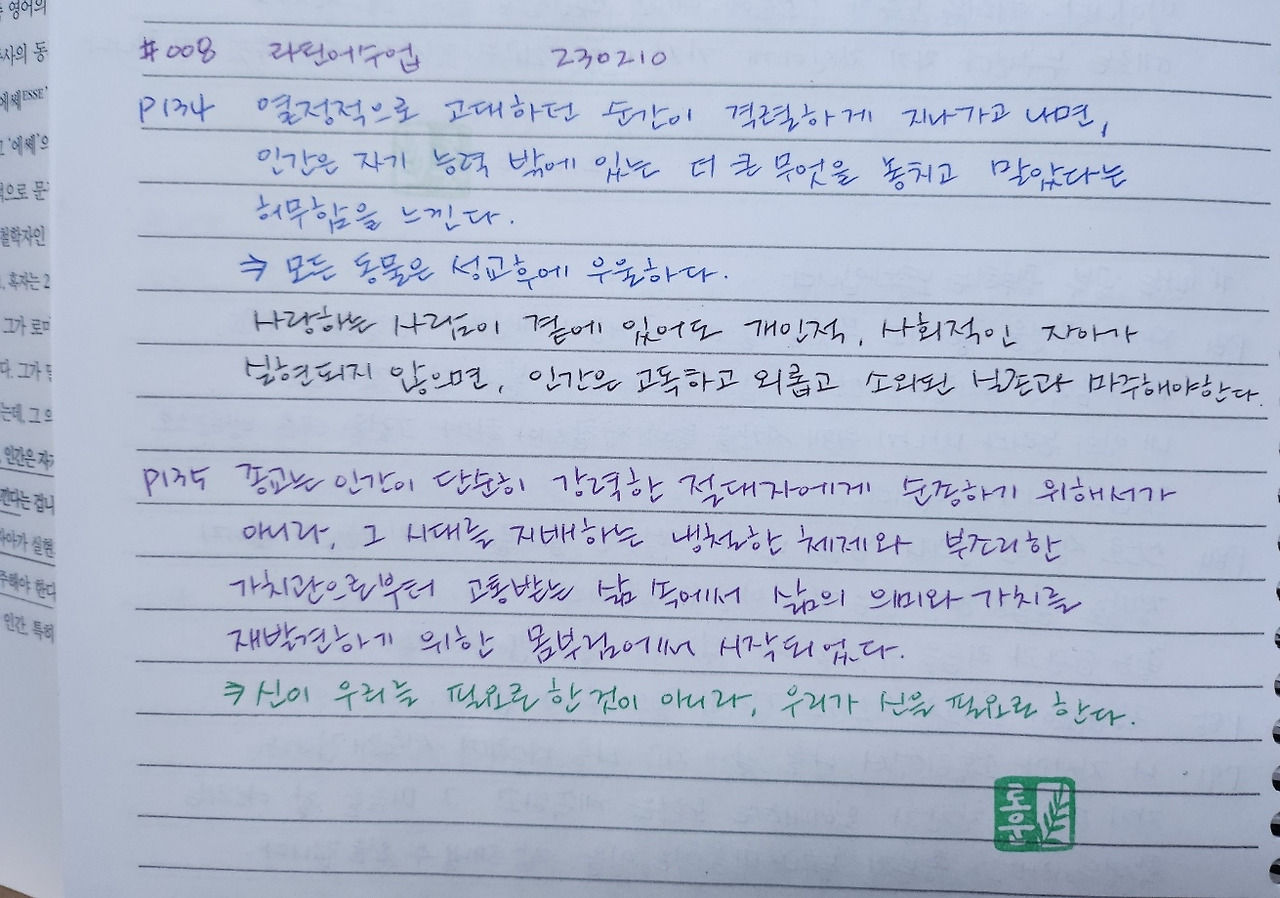 #008 라틴어수업 230210
P134 열정적으로 고대하던 순간이 격렬하게 지나가고 나면,
인간은 자기 능력 밖에 있는 더 큰 무엇을 놓치고 말았다는
허무함을 느낀다.
→ 모든 동물은 성교후에 우울하다.
사랑하는 사람이 곁에 있어도 개인적, 사회적인 자아가
실현되지 않으면, 인간은 고독하고 외롭고 소외된 실존과 마주해야한다.
P135 종교는 인간이 단순히 강력한 절대자에게 순종하기 위해서가
아니라, 그 시대를 지배하는 냉철한 체제와 부조리한
가치관으로부터 고통받는 삶 속에서 삶의 의미와 가치를
재발견하기 위한 몸부림에서 시작되었다.
→ 신이 우리를 필요로 한 것이 아니라, 우리가 신을 필요로 한다.
로운
영어의
사의 동
에쎄ESSE'
'에쎄'의
적으로 문
철학자인
혹자는 2
그가 로마
다. 그가
는데, 그의
인간은 자기
낀다는 겁니
자아가 실현
주해야 한다
인간, 특히